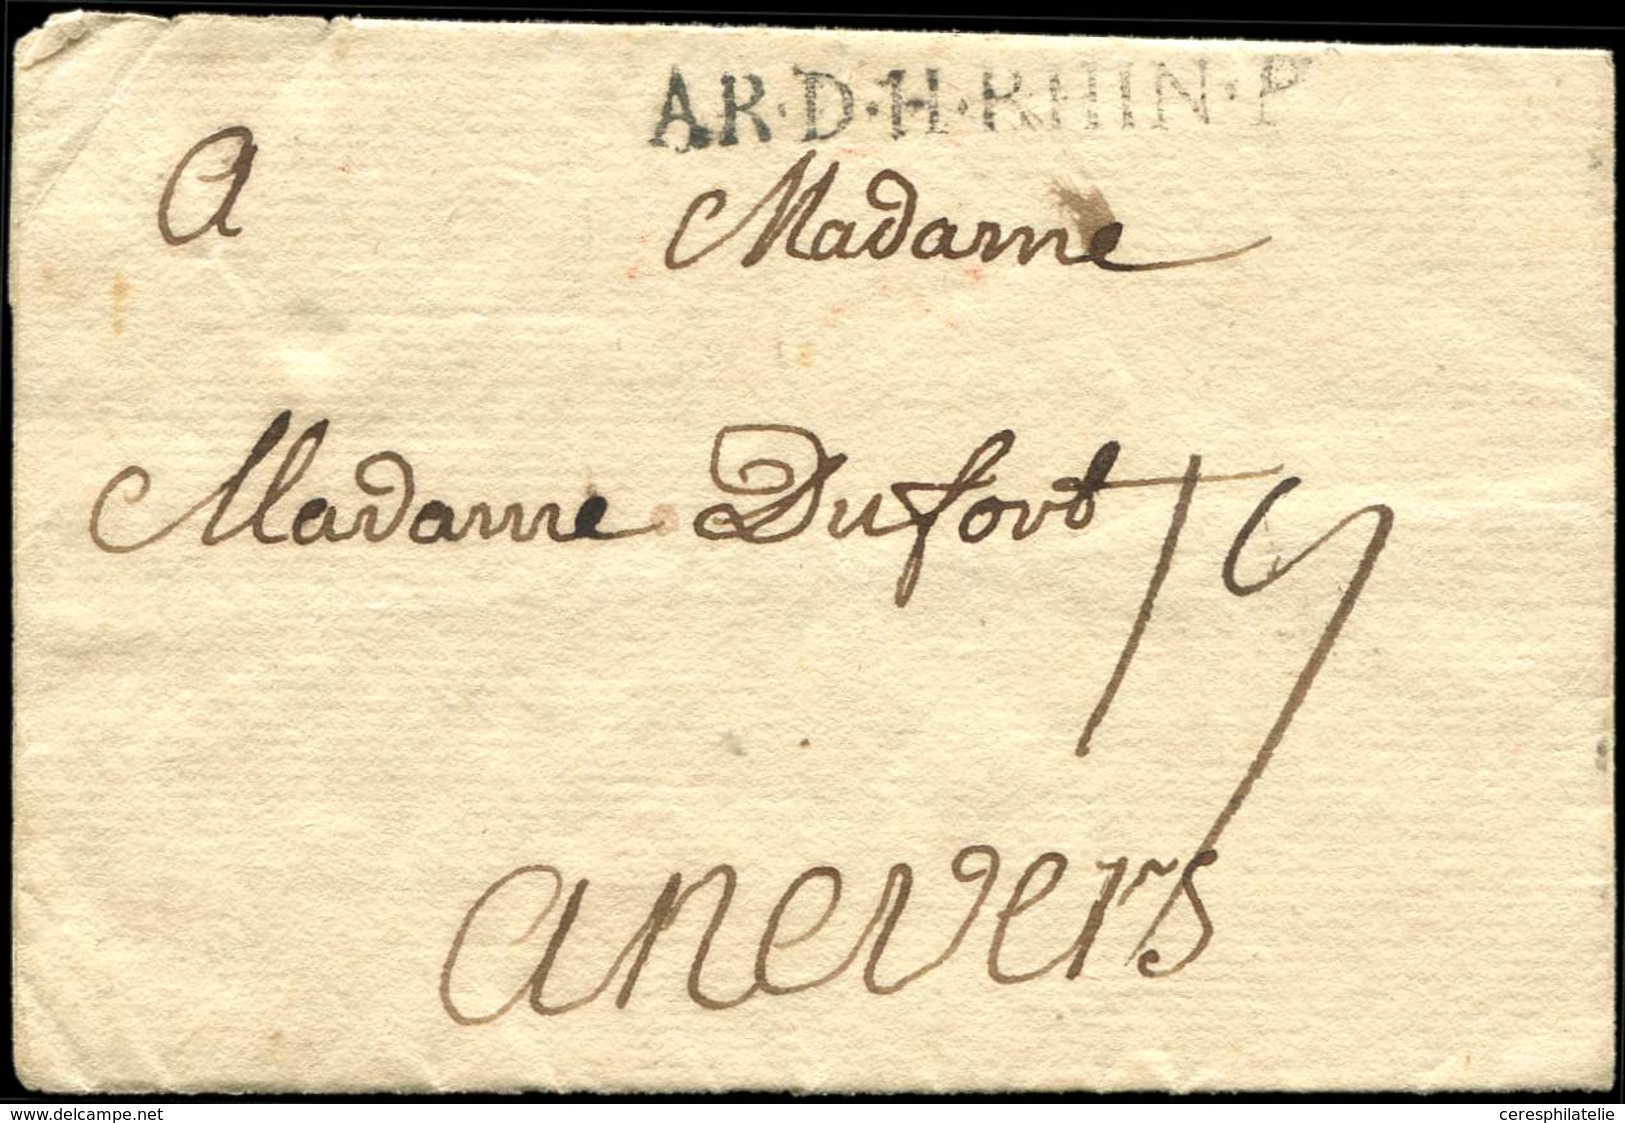 AR·D·H·RHIN·P
A Madame
Madame Dufort
19
anevers
www.delcampe.net
ceresphilatelie